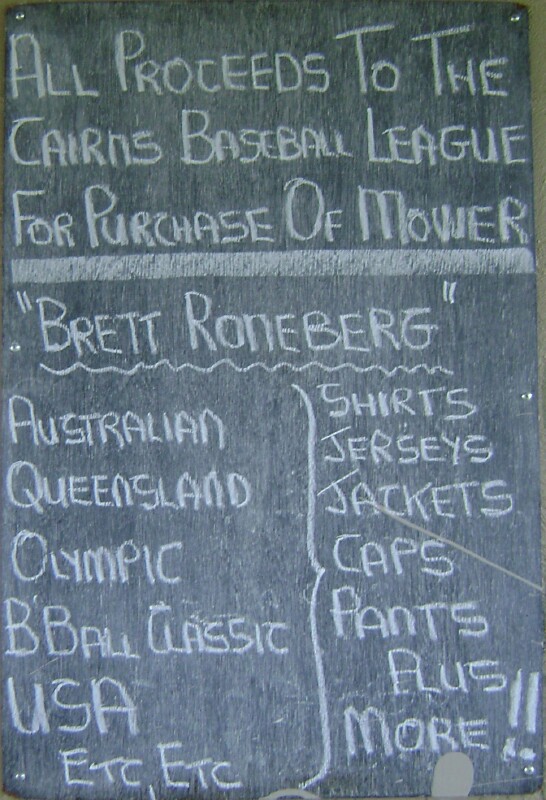 ALL PROCEEDS TO THE
CAIRNS BASEBALL LEAGUE
FOR PURCHASE OF MOWER
"BRETT RONEBERG"
AUSTRALIAN
QUEENSLAND
OLYMPIC
B'BALL CLASSIC
USA
ETC, ETC
SHIRTS
JERSEYS
JACKETS
CAPS
PANTS
PLUS
MORE!!